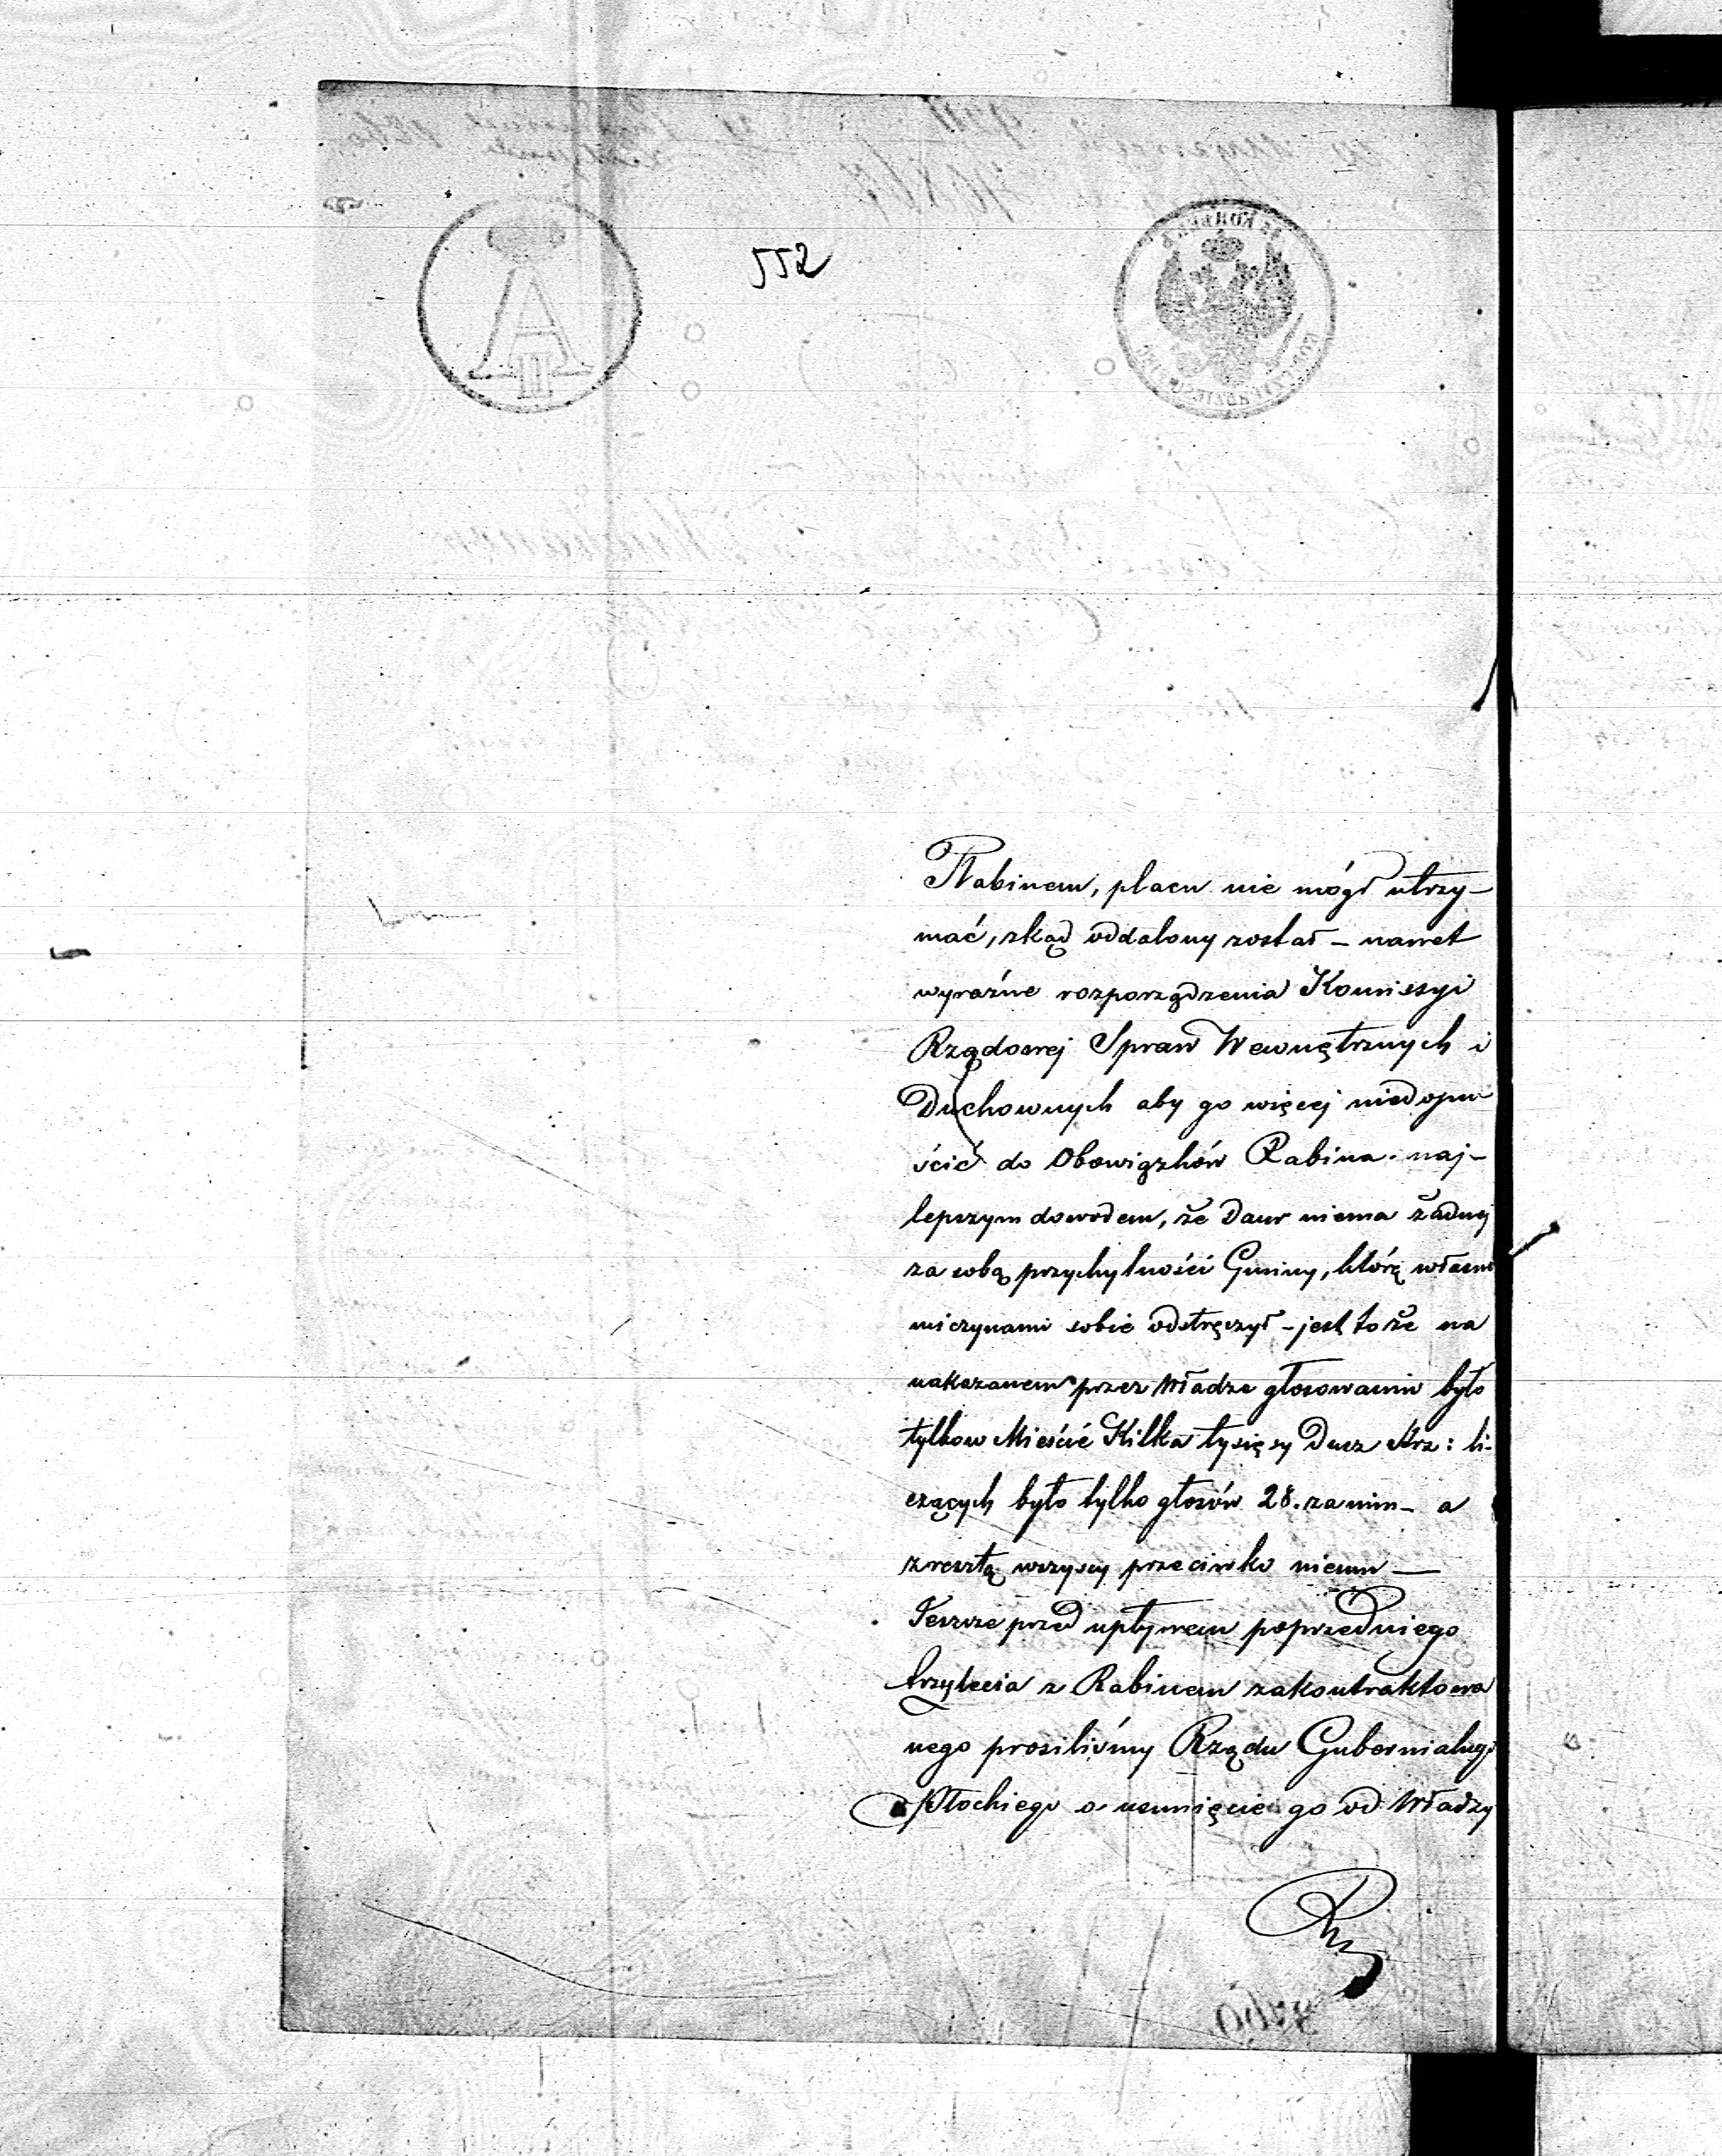 552
A
II
Rabinem, placu nie mógł utrzy-
mać, skąd oddalony został - nawet
wyraźne rozporządzenia Kommissyi
Rządowej Spraw Wewnętrznych i
Duchownych aby go więcej niedopu
ścić do Obowiązków Rabina. naj-
lepszym dowodem, że Daur niema żadnej
za sobą przychylności Gminy, którą własne
mi czynami sobie odstręczył - jest to że na
nakazanem przez Władze głosowaniu było
tylko w Mieście Kilka tysięcy Dusz Strz: li-
czących było tylko głosów 28. za nim - a
zresztą wszyscy przeciwko niemu —
Jeszcze przed upływem poprzedniego
trzylecia z Rabinem zakontraktowa
nego prosiliśmy Rządu Gubernialnego
Płockiego o usunięcie go od Władzy